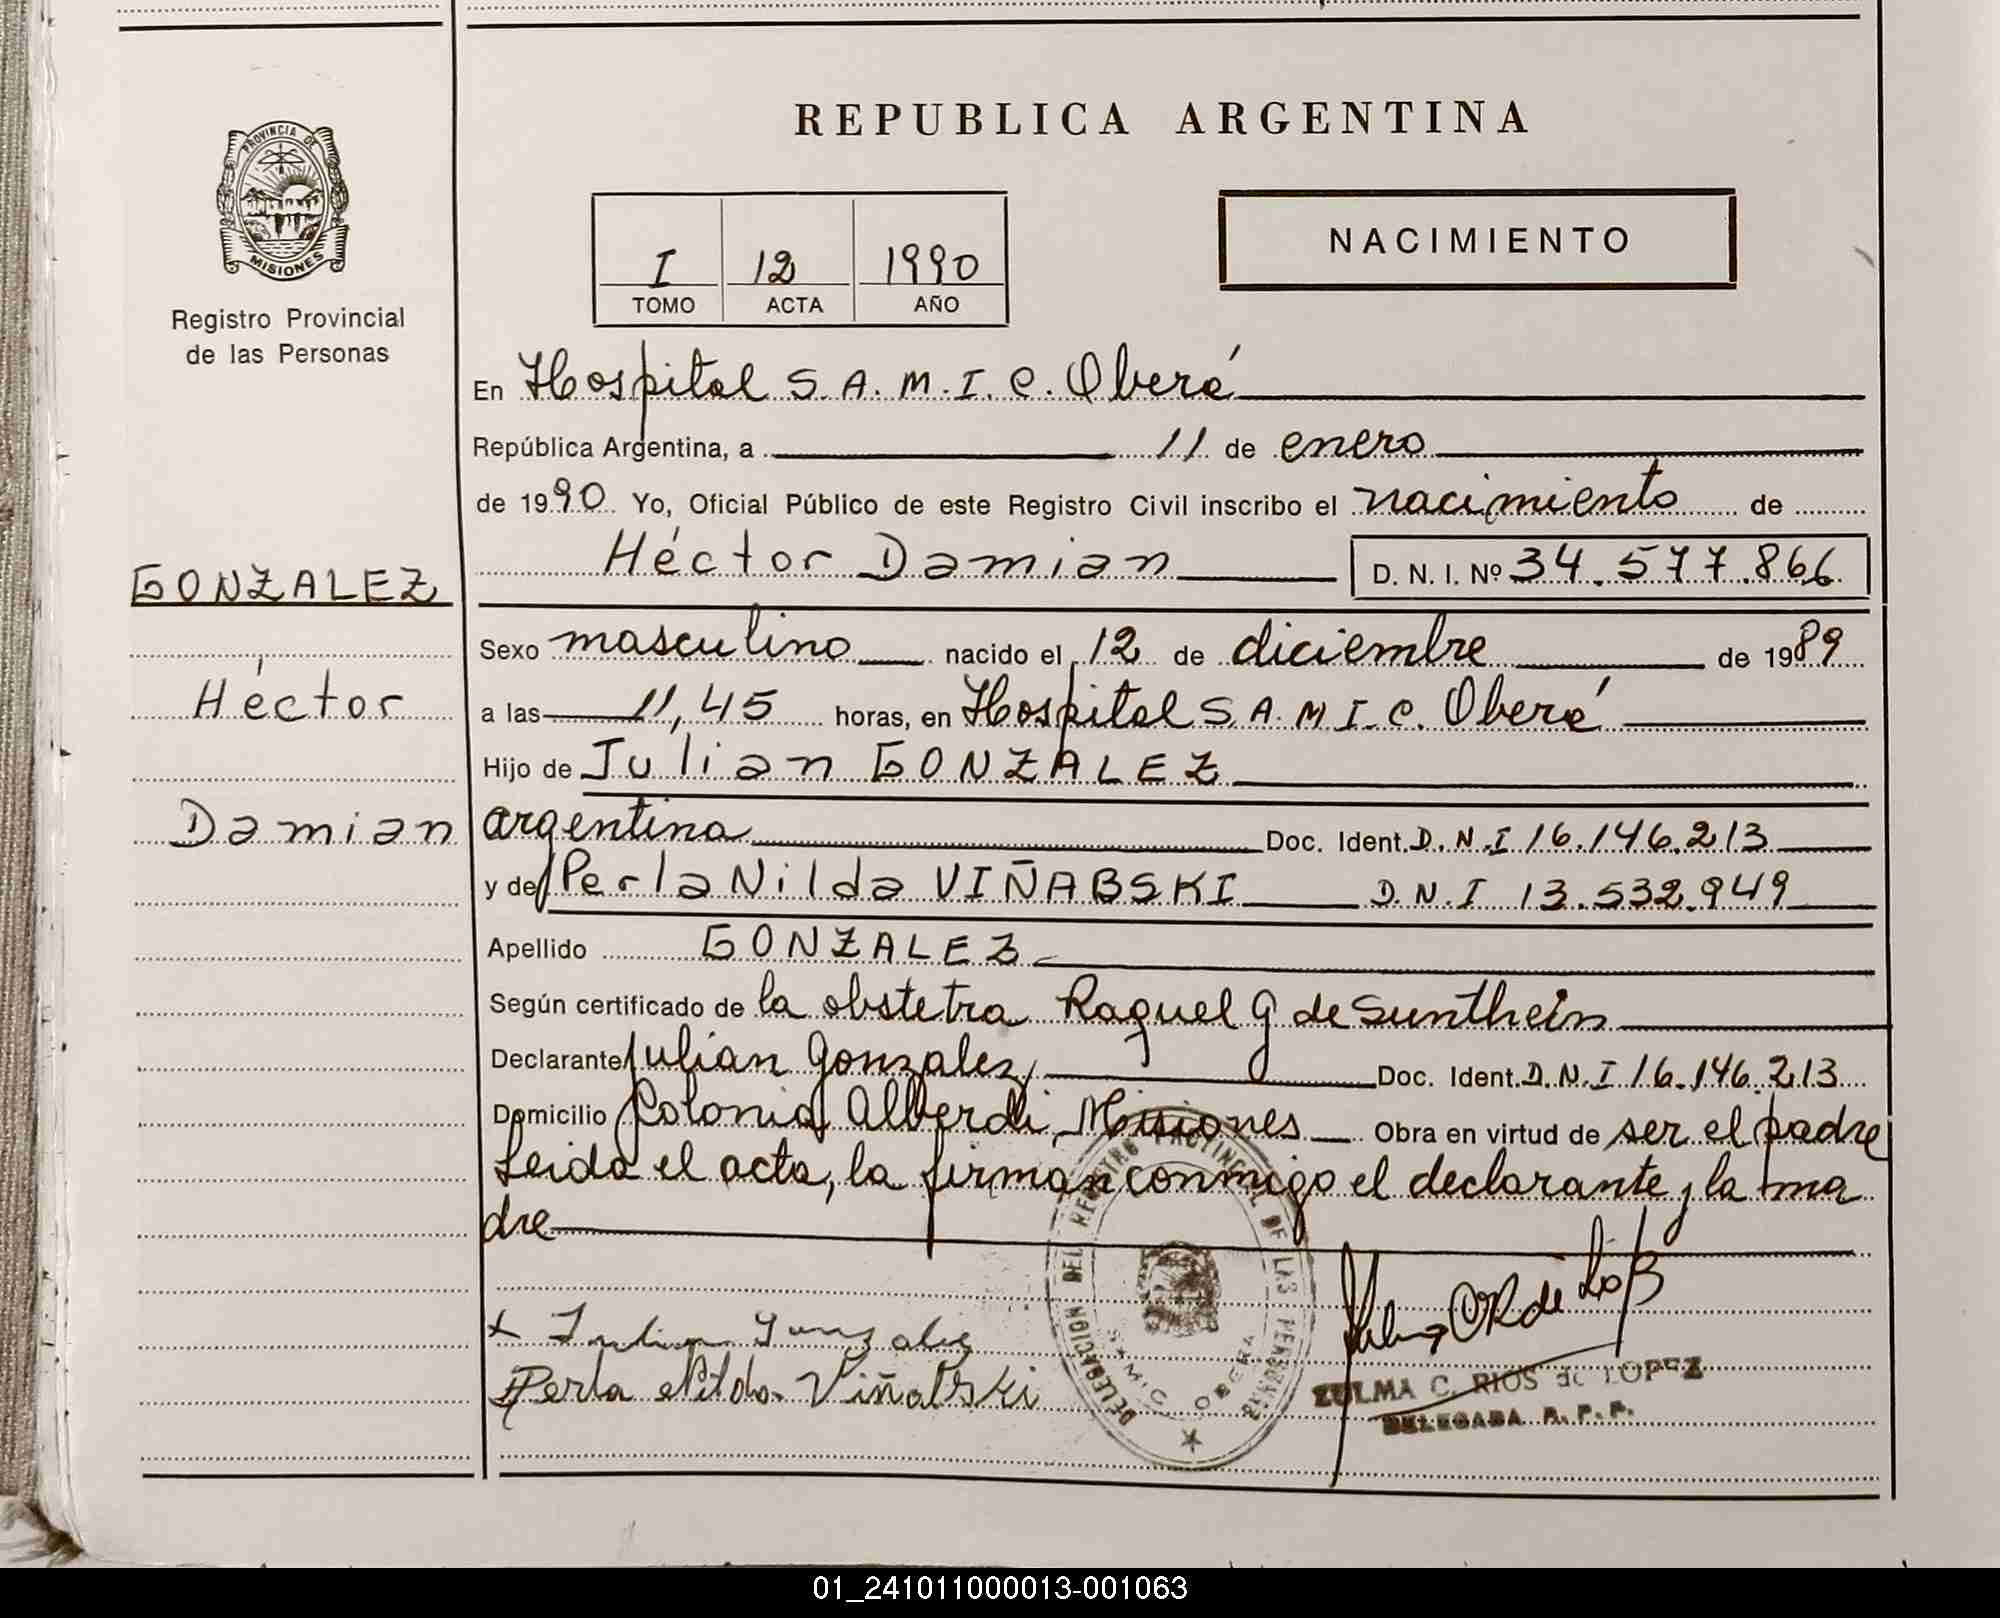 REPUBLICA ARGENTINA
PROVINCIA DE
MISIONES
Registro Provincial
de las Personas
I 12 1990
TOMO ACTA AÑO
NACIMIENTO
En Hospital S.A.M.I.C. Oberá
República Argentina, a 11 de enero
de 1990 Yo, Oficial Público de este Registro Civil inscribo el nacimiento de
Héctor Damian D. N. I. Nº 34.577.866
GONZALEZ
Héctor
Damian
Sexo masculino nacido el 12 de diciembre de 1989
a las 11,45 horas, en Hospital S.A.M.I.C. Oberá
Hijo de Julian GONZALEZ
argentina Doc. Ident. D.N.I 16.146.213
y de Perla Nilda VIÑABSKI D.N.I 13.532.949
Apellido GONZALEZ
Según certificado de la obstetra Raquel G de Sunthein
Declarante Julian Gonzalez Doc. Ident. D.N.I 16.146.213
Domicilio Colonia Alberdi, Misiones Obra en virtud de ser el padre
Leida el acta, la firman conmigo el declarante y la ma
dre
x Julian Gonzalez
Perla Nilda Viñabski
DELEGACION DEL REGISTRO PROVINCIAL DE LAS PERSONAS
SAMIC OBERA
ZULMA C. RIOS de LOPEZ
DELEGADA R. P. P.
01_241011000013-001063